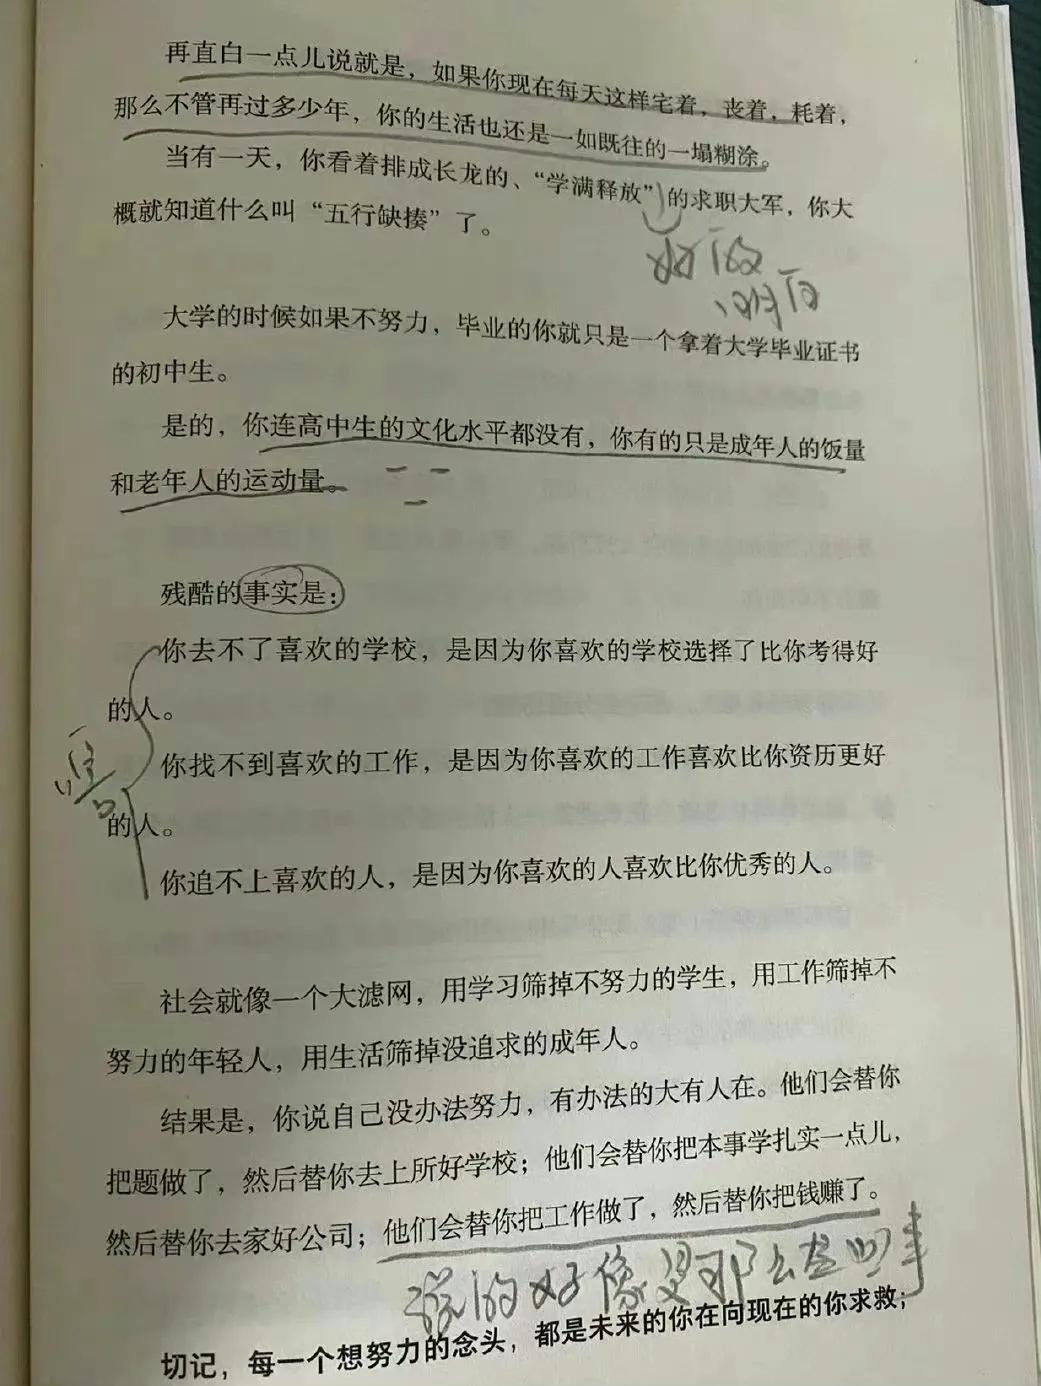 再直白一点儿说就是，如果你现在每天这样宅着，丧着，耗着，
那么不管再过多少年，你的生活也还是一如既往的一塌糊涂。
当有一天，你看着排成长龙的、“学满释放”的求职大军，你大
概就知道什么叫“五行缺揍”了。
好的
明白
大学的时候如果不努力，毕业的你就只是一个拿着大学毕业证书
的初中生。
是的，你连高中生的文化水平都没有，你有的只是成年人的饭量
和老年人的运动量。
残酷的事实是：
你去不了喜欢的学校，是因为你喜欢的学校选择了比你考得好
的人。
你找不到喜欢的工作，是因为你喜欢的工作喜欢比你资历更好
的人。
你追不上喜欢的人，是因为你喜欢的人喜欢比你优秀的人。
社会就像一个大滤网，用学习筛掉不努力的学生，用工作筛掉不
努力的年轻人，用生活筛掉没追求的成年人。
结果是，你说自己没办法努力，有办法的大有人在。他们会替你
把题做了，然后替你去上所好学校；他们会替你把本事学扎实一点儿，
然后替你去家好公司；他们会替你把工作做了，然后替你把钱赚了。
说的好像是那么回事
切记，每一个想努力的念头，都是未来的你在向现在的你求救；